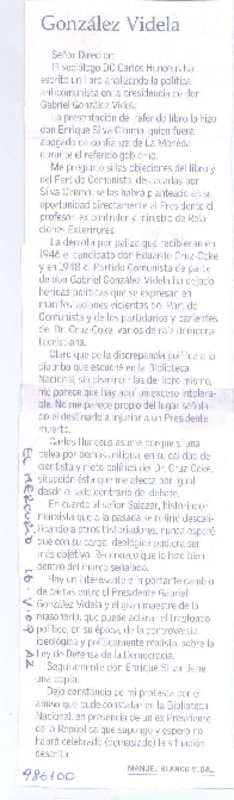 González Videla
Señor Director:
El sociólogo DC Carlos Huneeus ha
escrito un libro analizando la política
anticomunista en la presidencia de don
Gabriel González Videla.
La presentación del referido libro la hizo
don Enrique Silva Cimma, quien fuera
abogado de confianza de La Moneda
durante el referido gobierno.
Me pregunto si las objeciones del libro y
del Partido Comunista, destacadas por
Silva Cimma, se las habrá planteado en su
oportunidad directamente al Presidente el
profesor, ex contralor y ministro de Rela
ciones Exteriores.
La derrota por paliza que recibieran en
1946 el candidato don Eduardo Cruz-Coke
y en 1948 el Partido Comunista de parte
de don Gabriel González Videla ha dejado
heridas políticas que se expresan en
manifestaciones violentas del Partido
Comunista y de los partidarios y parientes
del Dr. Cruz-Coke, varios de raíz democra-
tacristiana.
Claro que de la discrepancia política a la
diatriba que escuché en la Biblioteca
Nacional, sin disminuir las del libro mismo,
me parece que hay aquí un exceso intolera-
ble. No me parece propio del lugar señala-
do el destinarlo a injuriar a un Presidente
muerto.
Carlos Huneeus asume porque sí una
pelea por demás antigua, en su calidad de
cientista y nieto político del Dr. Cruz-Coke,
situación ésta que me afecta por igual
desde el lado contrario del debate.
En cuanto al señor Salazar, historiador
marxista que a la pasada se refirió descali-
ficando a otros historiadores, nunca esperé
que con su carga ideológica pudiera ser
más objetivo. Reconozco que lo hizo bien
dentro del marco señalado.
Hay un interesante e importante cambio
de cartas entre el Presidente Gabriel
González Videla y el gran maestre de la
masonería, que puede aclarar el trasfondo
político, en su época, de la controversia
ideológica y políticamente realista sobre la
Ley de Defensa de la Democracia.
Seguramente don Enrique Silva tiene
una copia.
Dejo constancia de mi protesta por el
abuso que pude constatar en la Biblioteca
Nacional, en presencia de un ex Presidente
de la República que supongo y espero no
habrá celebrado (demasiado) la situación
descrita.
MANUEL BLANCO VIDAL
EL MERCURIO 16-V-09 A2
986100